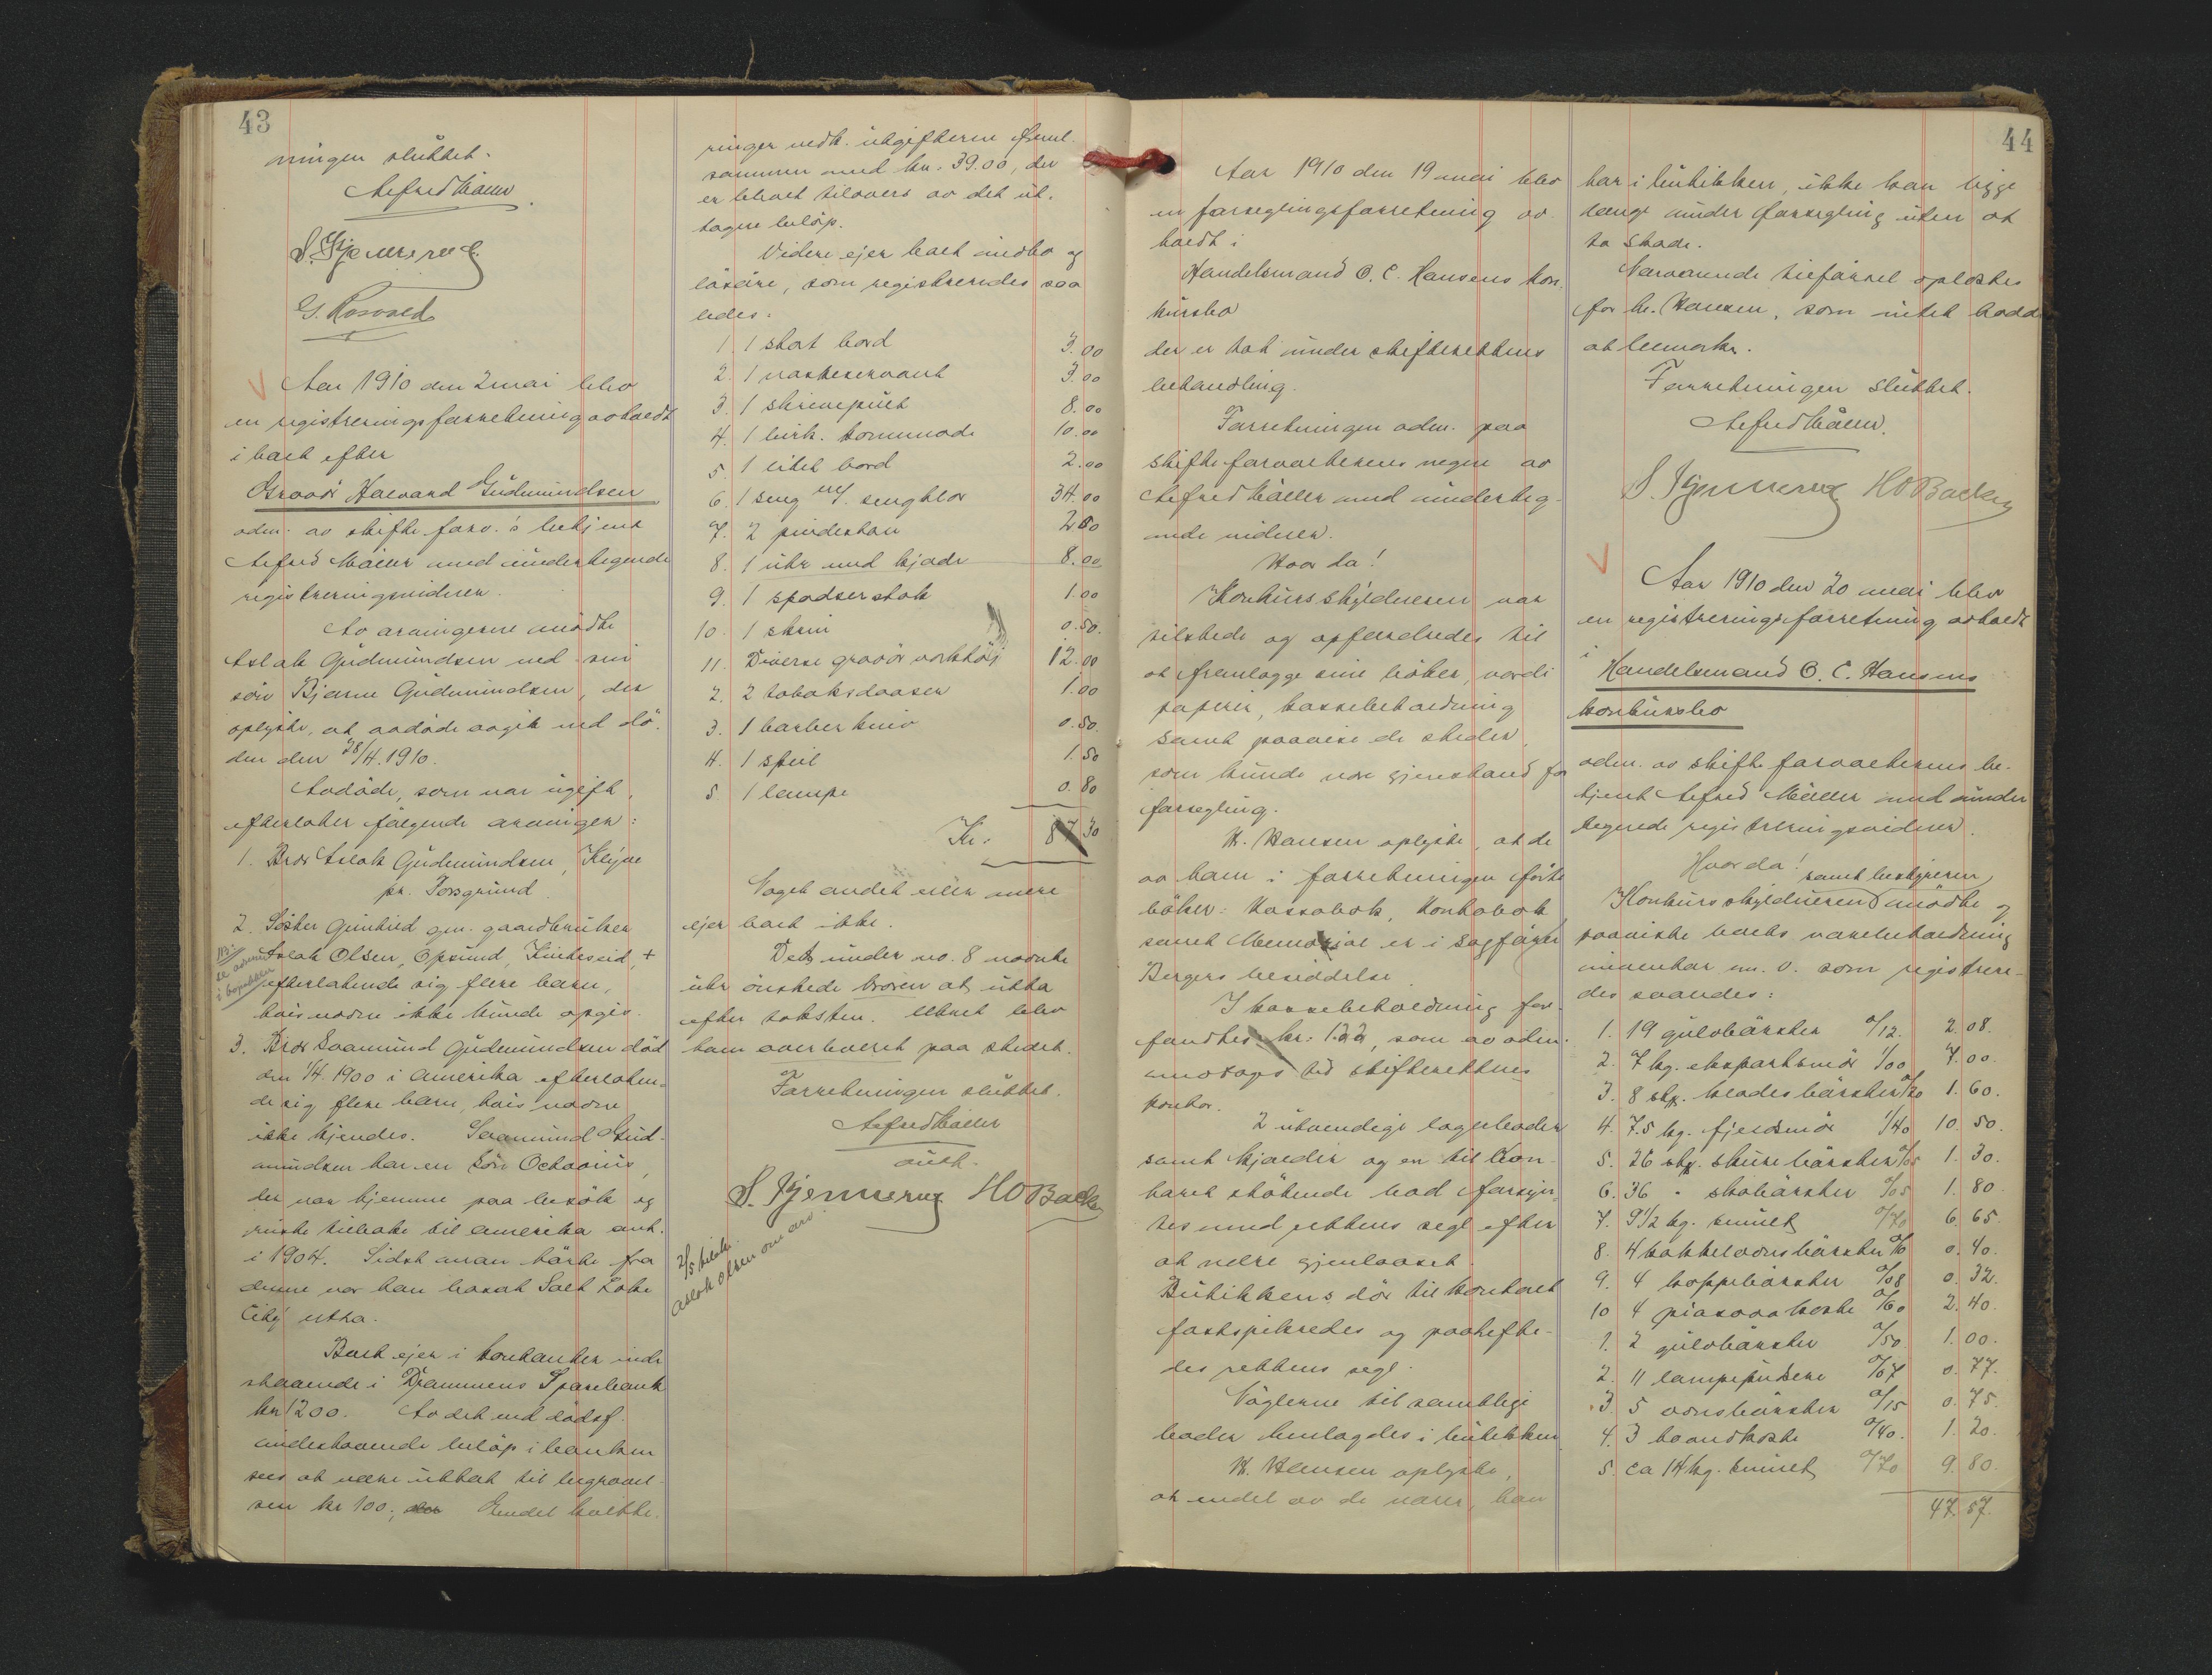 43
ningen sluttet.
Alfred Møller
S. Gjemserud
G. Rosvold
Aar 1910 den 2 mai blev
en registreringsforretning avholdt
i boet efter
Gravør Halvard Gudmundsen
adm. av skifteforv.'s betjent
Alfred Møller med undertegnede
registreringsvidner.
Av arvingerne mødte
Aslak Gudmundsen ved sin
søn Bjarne Gudmundsen, der
oplyste, at avdøde avgik ved dø-
den den 28/4. 1910.
Avdøde, som var ugift,
efterlater følgende arvinger:
1. Bror Aslak Gudmundsen, Klyve
pr. Porsgrund.
2. Søster Gunhild gm. gaardbruker
Aslak Olsen, Opsund, Kviteseid, +
efterlatende sig flere barn,
hvis navne ikke kunde opgis.
3. Bror Saamund Gudmundsen død
den 1/4. 1900 i Amerika efterlaten-
de sig flere barn, hvis navne
ikke kjendes. Saamund Gud-
mundsen har en søn Octavius,
der var hjemme paa besøk og
reiste tilbake til Amerika ant.
i 1904. Sidst man hørte fra
denne var han bosat Salt Lake
City Utha.
Boet ejer i kontanter inde
staaende i Drammens Sparebank
kr 1200. Av det ved dødsf.
indestaaende beløp i banken
sees at være uttat til begravel-
sen kr 100, Endel kvitte-
ringer vedk. utgifterne freml.
sammen med kr. 39.00, der
er blevet tilovers av det ut-
tagne beløp.
Videre ejer boet indbo og
løsøre, som registreredes saa
ledes:
1. 1 stort bord 3.00
2. 1 vaskeservant 3.00
3. 1 skrivepult 8.00
4. 1 birk. kommode 10.00
5. 1 litet bord 2.00
6. 1 seng m/. sengklær 34.00
7. 2 pindestoler 2.00
8. 1 uhr med kjæde 8.00
9. 1 spadserstok 1.00
10. 1 skrin 0.50.
11. Diverse gravør verktøi 12.00
2. 2 tobaksdaaser 1.00
3. 1 barberkniv 0.50.
4. 1 speil 1.50
5. 1 lampe 0.80
Kr. 87 30
Noget andet eller mere
ejer boet ikke.
Det under no. 8 nævnte
uhr ønskede broren at utta
efter taksten. Uhret blev
ham overleveret paa stedet.
Forretningen sluttet.
Alfred Møller
auth.
S. Gjemserud HO Backe
2/5 tilsk.
Aslak Olsen om arv
44
Aar 1910 den 19 mai blev
en forseglingsforretning av-
holdt i
Handelsmand O. C. Hansens kon-
kursbo
der er tat under skifterettens
behandling.
Forretningen adm. paa
skifteforvalterens vegne av
Alfred Møller med underteg-
nede vidner.
Hvor da!
Konkursskyldneren var
tilstede og opfordredes til
at fremlægge sine bøker, værdi
papirer, kassebeholdning
samt paavise de steder,
som kunde være gjenstand for
forsegling.
H. Hansen oplyste, at de
av ham i forretningen førte
bøker: Kassabok, Kontobok
samt Memorial er i sagfører
Bergers besiddelse
I kassebeholdning for-
fandtes kr. 1.22, som av adm.
motoges til skifterettens
kontor.
2 utvendige lagerboder
samt kjælder og en til kon-
toret støtende bod forsyn-
tes med rettens segl efter
at være gjenlaaset.
Butikkens dør til kontoret
fastspikredes og paahefte-
des rettens segl.
Nøglerne til samtlige
boder henlagdes i butikken
H. Hansen oplyste,
at endel av de varer, han
har i butikken, ikke kan ligge
længe under forsegling uten at
ta skade.
Nærværende tilførsel oplæstes
for hr. Hansen, som intet hadde
at bemerke.
Forretningen sluttet.
Alfred Møller.
S. Gjemserud HO Backe
Aar 1910 den 20 mai blev
en registreringsforretning avholdt
i
Handelsmand O. C. Hansens
konkursbo
adm. av skifteforvalterens be-
tjent Alfred Møller med under
tegnede registreringsvidner.
Hvor da!
samt bestyreren
Konkursskyldneren mødte og
paaviste boets varebeholdning
inventar m. v. som registrere-
des saaledes:
1. 19 gulvbørster a/12. 2.08.
2. 7 kg. eksportsmør 1/00 7.00.
3. 8 stk. klædesbørster a/20 1.60.
4. 7.5 kg. fjeldsmør 1/40 10.50.
5. 26 stk. skurebørster a/05 1.30.
6. 36 " skobørster a/05 1.80
7. 9 1/2 kg. a/70 6.65
8. 4 kakkelovnsbørster a/10 0.40.
9. 4 koppebørster a/08 0.32.
10 4 piasavakoste a/60 2.40.
1. 2 gulvbørster a/50 1.00.
2. 11 lampepudsere a/07 0.77.
3. 5 ovnsbørster a/15 0.75.
4. 3 haandkoste a/40. 1.20.
5. ca 14 kg. a/70 9.80.
47.57.